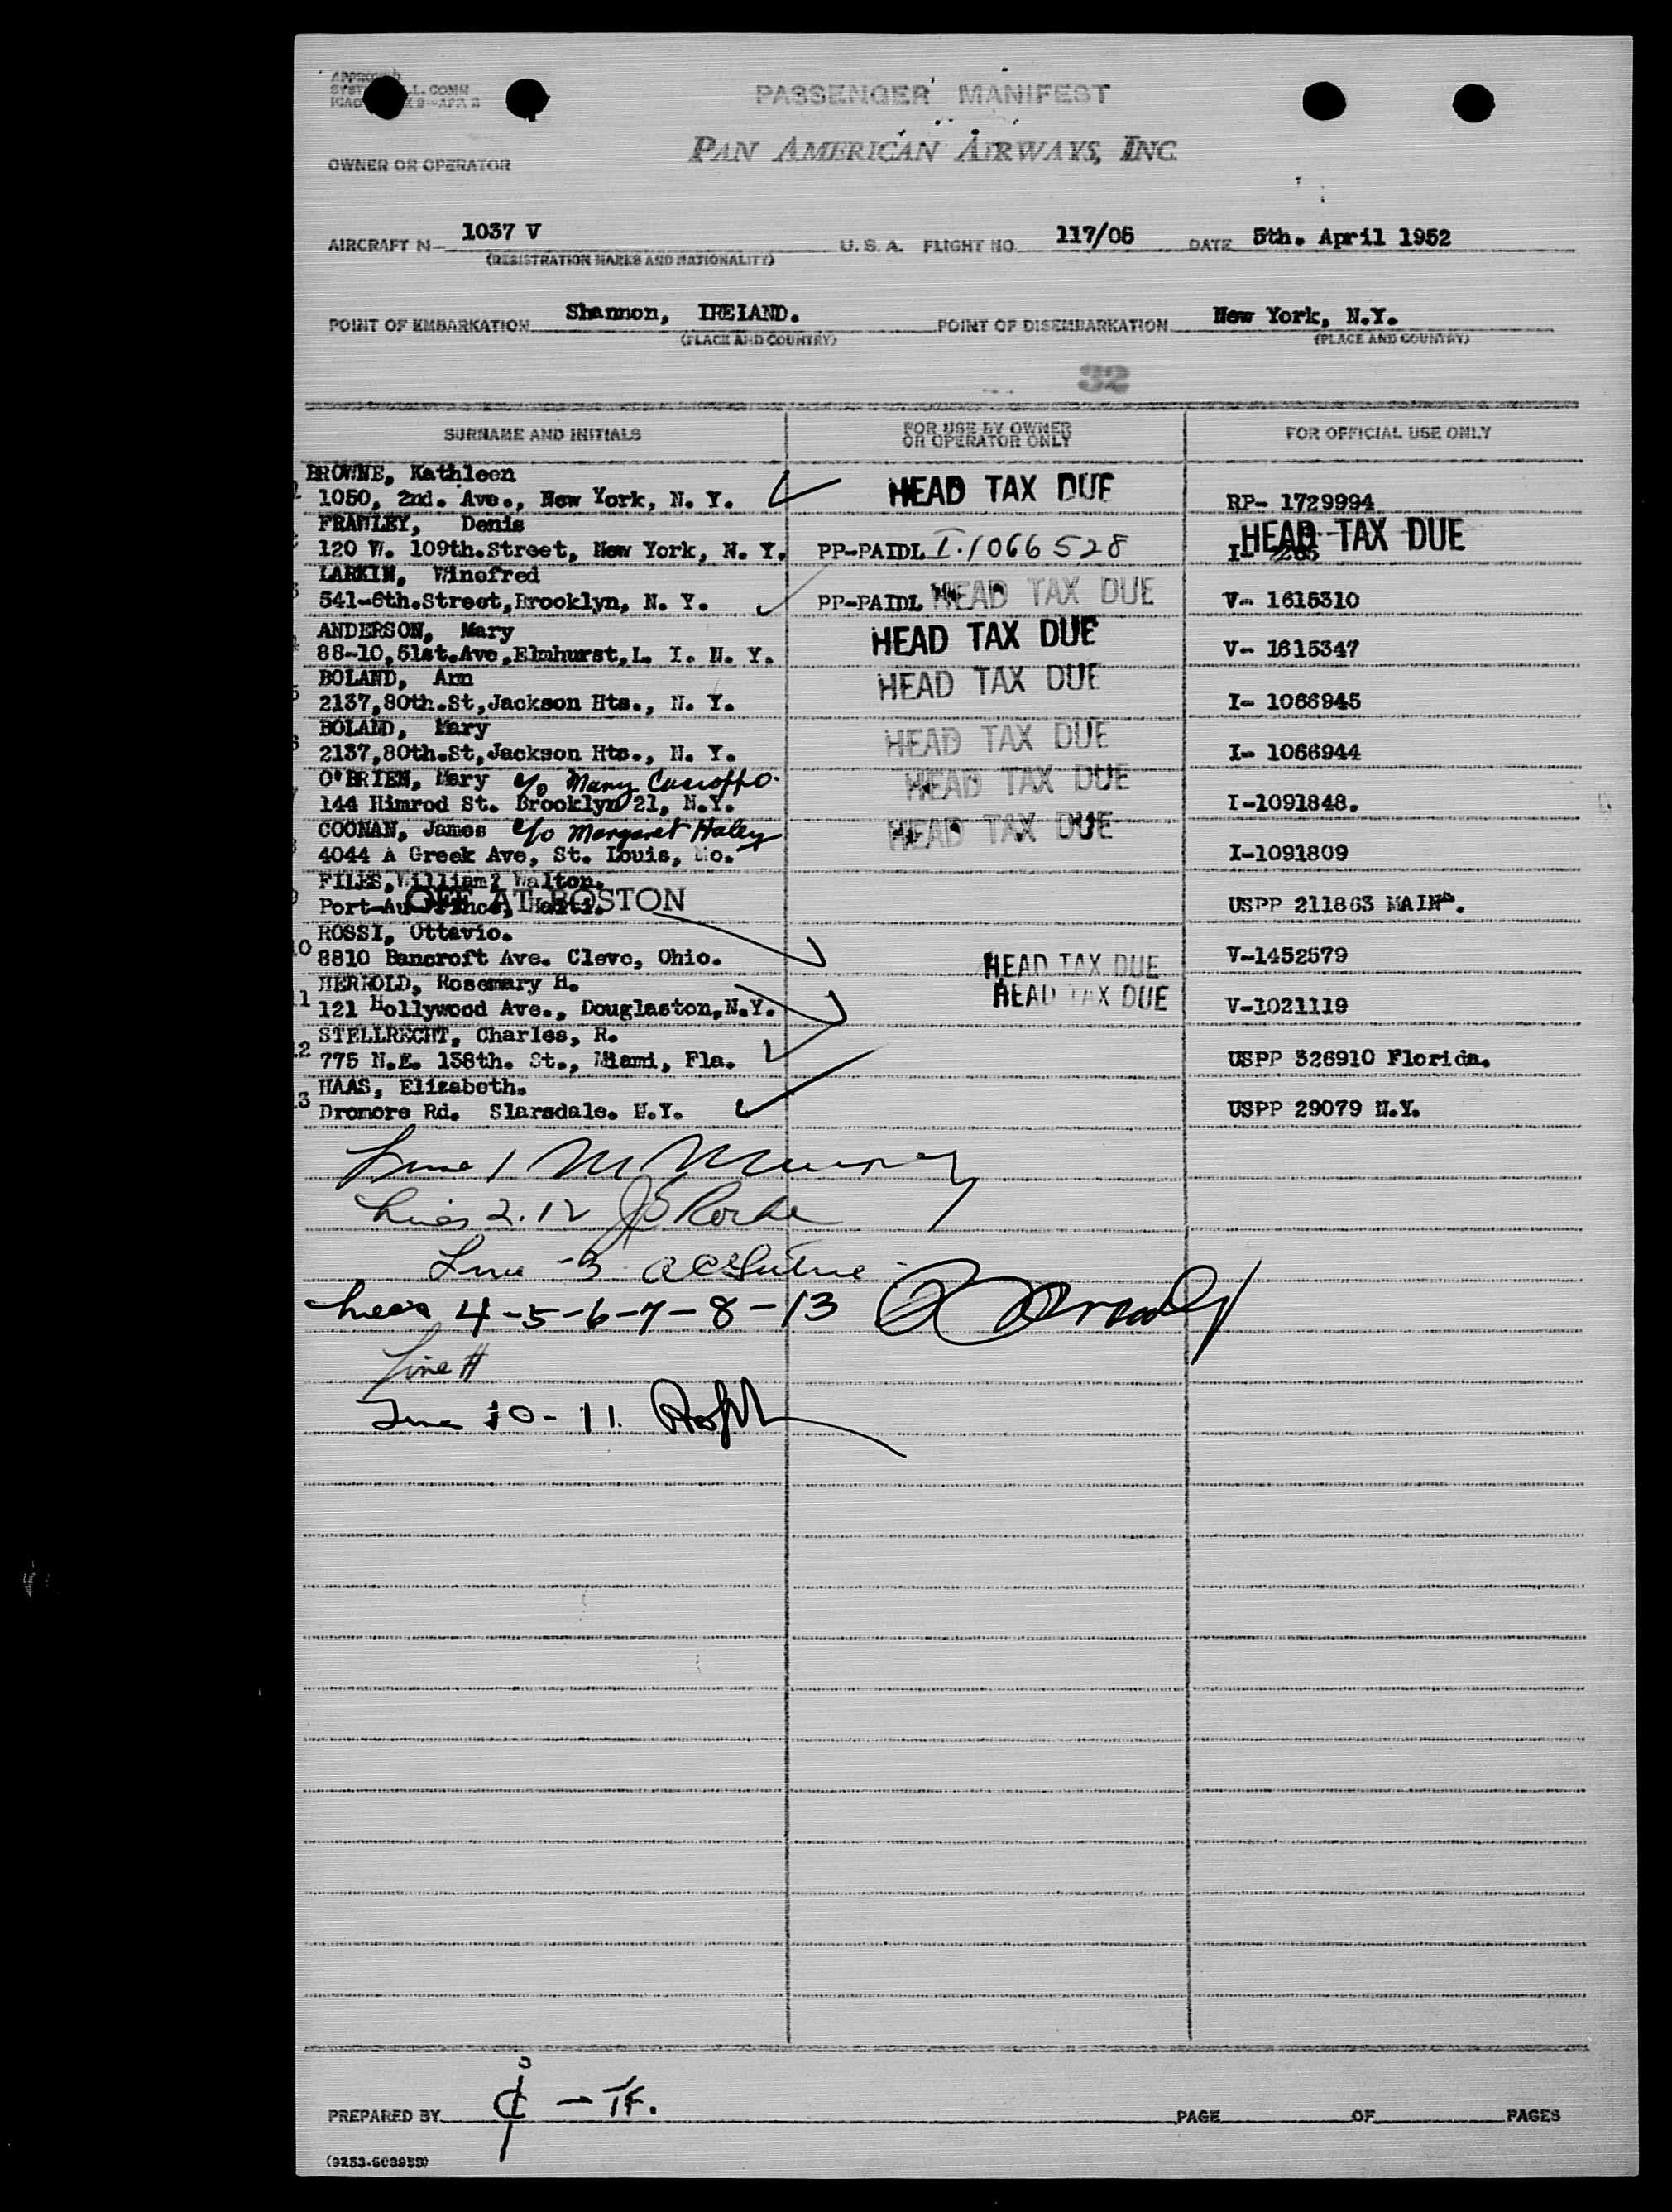 APPROVED
PASSENGER MANIFEST
PAN AMERICAN AIRWAYS, INC.
OWNER OR OPERATOR
AIRCRAFT N- 1037 V U. S. A. FLIGHT NO. 117/05 DATE 5th. April 1952
(REGISTRATION MARKS AND NATIONALITY)
POINT OF EMBARKATION Shannon, IRELAND. POINT OF DISEMBARKATION New York, N.Y.
(PLACE AND COUNTRY) (PLACE AND COUNTRY)
32
SURNAME AND INITIALS FOR USE BY OWNER OR OPERATOR ONLY FOR OFFICIAL USE ONLY
BROWNE, Kathleen
1050, 2nd. Ave., New York, N. Y. HEAD TAX DUE RP- 1729994
FRAWLEY, Denis
120 W. 109th.Street, New York, N. Y. PP-PAIDL I.1066528 HEAD TAX DUE
LARKIN, Winefred
541-6th.Street,Brooklyn, N. Y. PP-PAIDL HEAD TAX DUE V- 1615310
ANDERSON, Mary
88-10,51st.Ave,Elmhurst,L. I. N. Y. HEAD TAX DUE V- 1615347
BOLAND, Ann
5 2137,80th.St,Jackson Hts., N. Y. HEAD TAX DUE I- 1066945
BOLAND, Mary
2137,80th.St,Jackson Hts., N. Y. HEAD TAX DUE I- 1066944
O'BRIEN, Mary c/o Mary
144 Himrod St. Brooklyn 21, N.Y. HEAD TAX DUE I-1091848.
COONAN, James c/o Margaret Haley
4044 A Greek Ave, St. Louis, Mo. HEAD TAX DUE I-1091809
FILES, William, Walton.
Port-Au-Prince, Haiti. OFF AT BOSTON USPP 211863 MAINE.
ROSSI, Ottavio.
10 8810 Bancroft Ave. Clevo, Ohio. HEAD TAX DUE V-1452579
HERROLD, Rosemary H.
11 121 Hollywood Ave., Douglaston,N.Y. HEAD TAX DUE V-1021119
STELLRECHT, Charles, R.
12 775 N.E. 138th. St., Miami, Fla. USPP 326910 Florida.
HAAS, Elizabeth.
13 Dromore Rd. Slarsdale. N.Y. USPP 29079 N.Y.
Line 1 M Murray
Lines 2.12
Line -3
Lines 4-5-6-7-8-13
Line #
Lines 10-11.
PREPARED BY PAGE OF PAGES